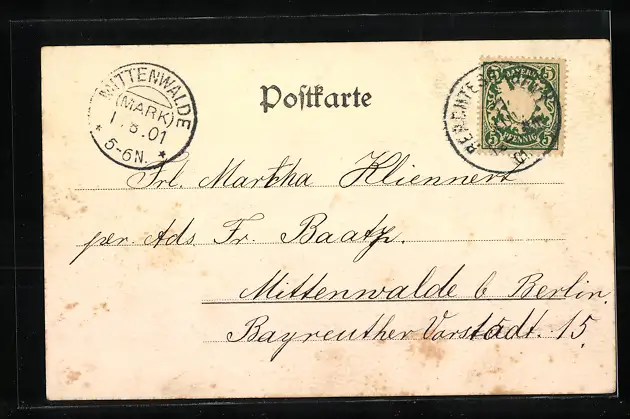 Postkarte
MITTENWALDE
(MARK)
1.8.01
5-6N.
BAYERN
5 5
PFENNIG
Frl. Martha Kliennert
per. Ads. Fr. Baatz.
Mittenwalde b Berlin.
Bayreuther Vorstadt. 15.